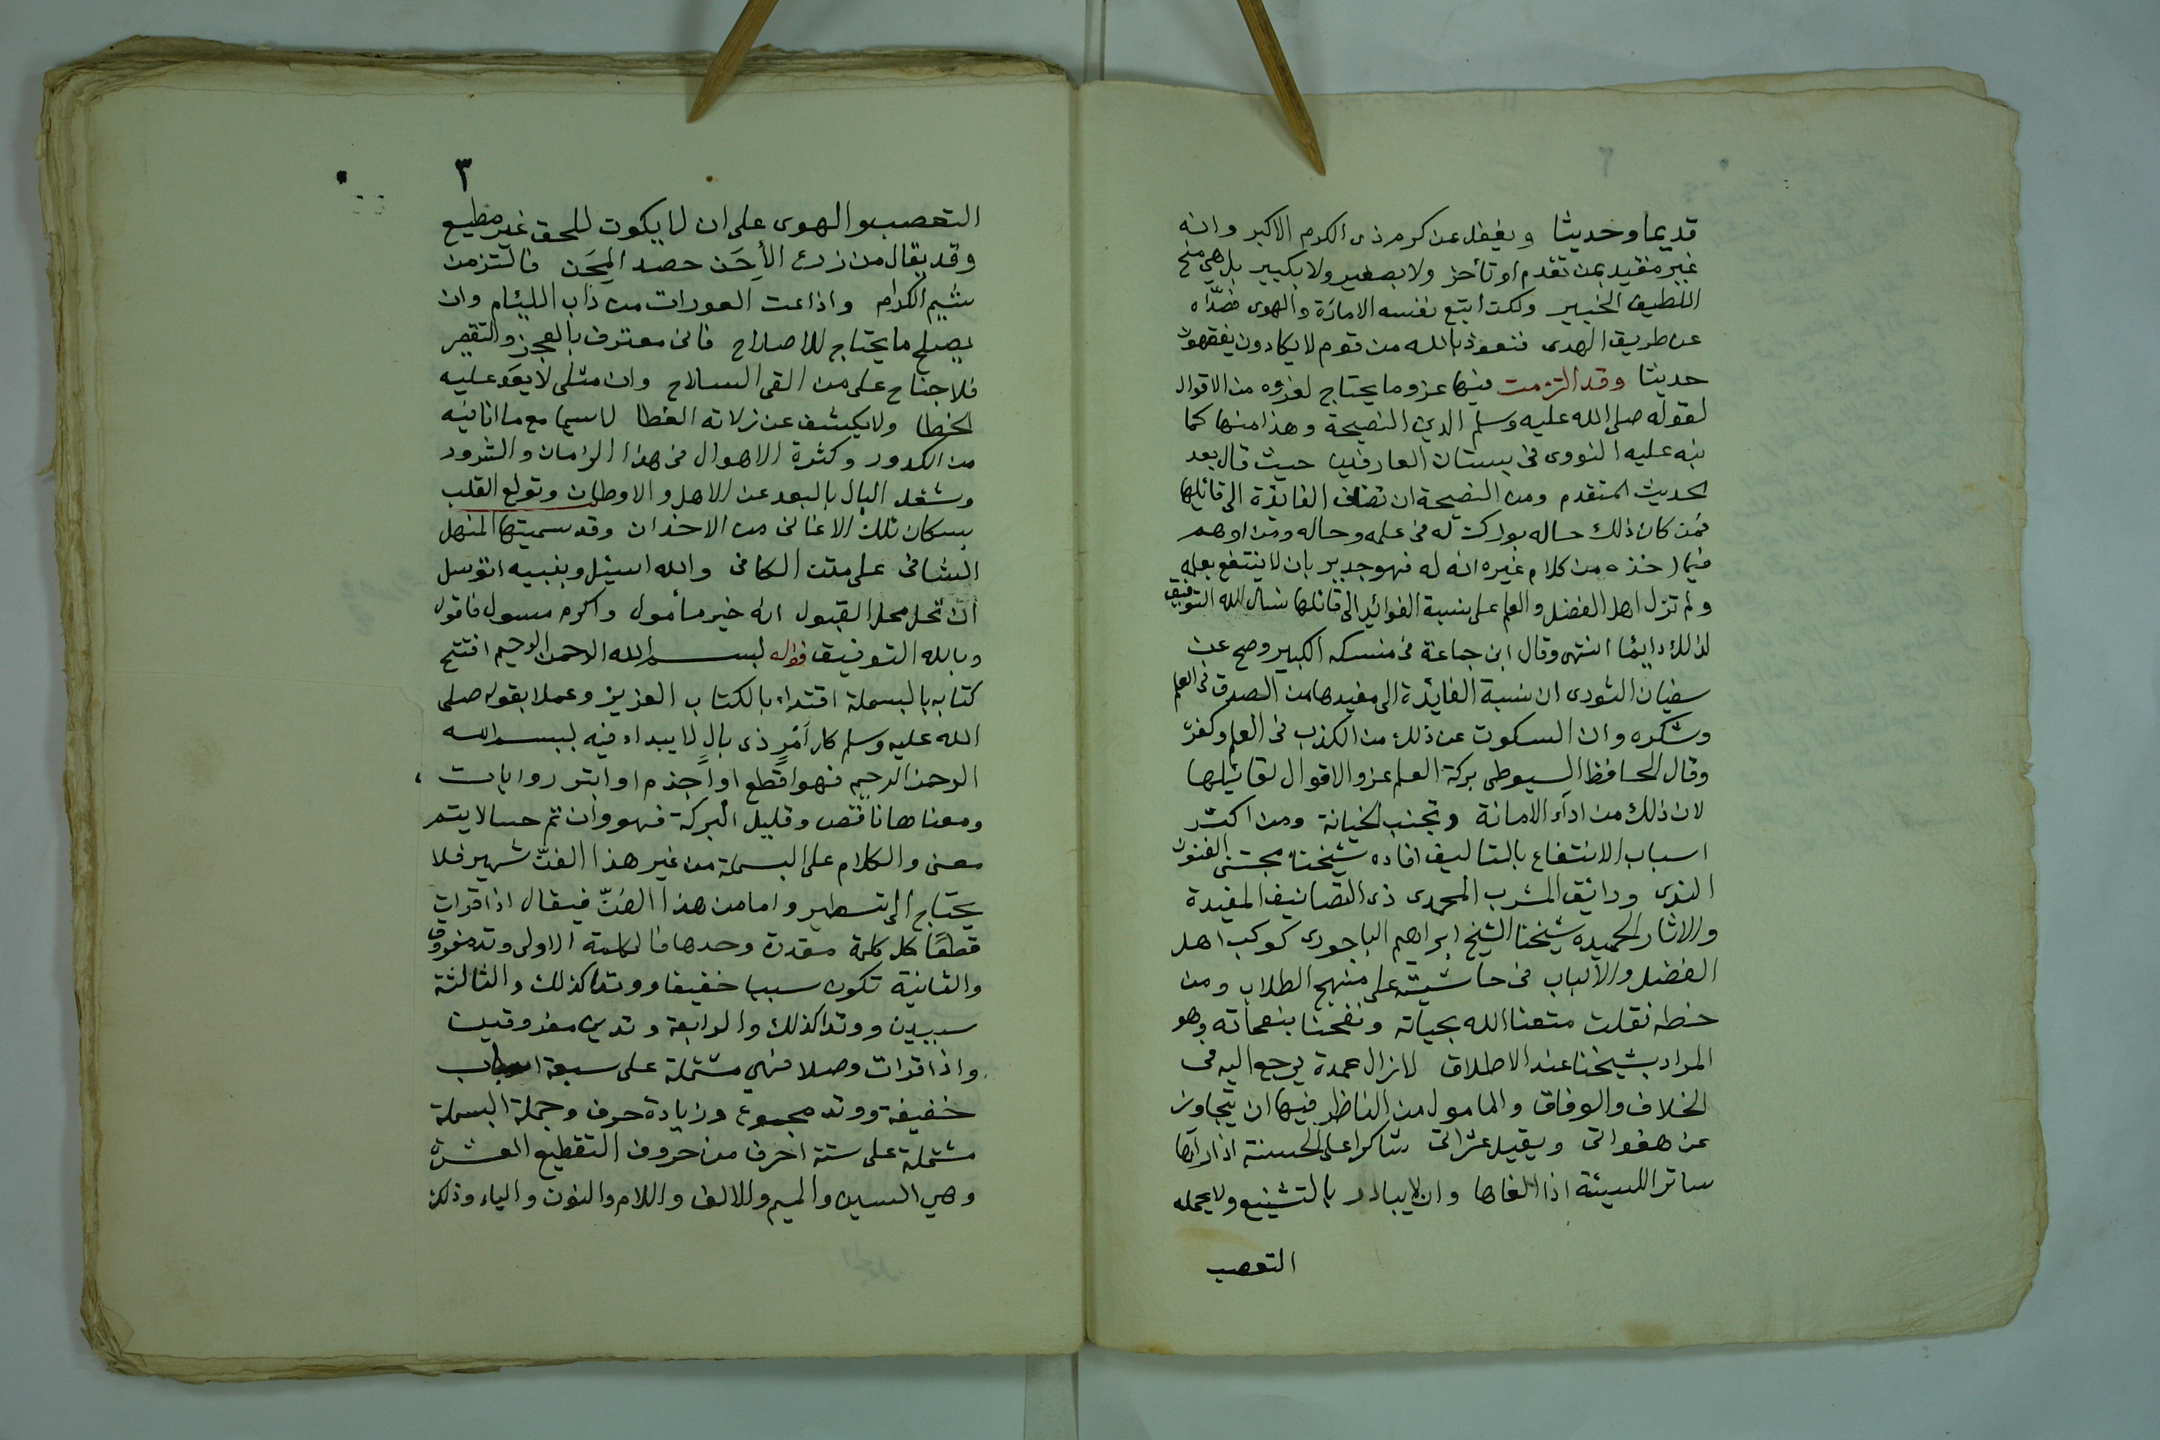 قديما وحديثا ويغفل عن كرم ذى الكرم الاكبر وانه
غير مقيد بمن تقدم او تأخر ولا بصغير ولا بكبير بل هى منح
اللطيف الخبير ولكن اتبع نفسه الامارة والهوى فصدّاه
عن طريق الهدى فنعوذ بالله من قوم لا يكادون يفقهون
حديثا وقد التزمت فيها عزو ما يحتاج لعزوه من الاقوال
لقوله صلى الله عليه وسلم الدين النصيحة وهذا منها كما
نبه عليه النووى فى بستان العارفين حيث قال بعد
الحديث المتقدم ومن النصيحة ان تضاف الفائدة الى قائلها
فمن كان ذلك حاله بورك له فى علمه وحاله ومن اوهم
فيما اخذه من كلام غيره انه له فهو جدير بان لا ينتفع بعلمه
ولم تزل اهل الفضل والعلم على نسبة الفوائد الى قائلها نسال الله التوفيق
لذلك دايمًا انتهى وقال ابن جماعة فى منسكه الكبير وصح عن
سفيان الثورى ان نسبة الفايدة الى مفيدها من الصدق فى العلم
وشكره وان السكوت عن ذلك من الكذب فى العلم وكفره
وقال الحافظ السيوطى بركة العلم عزو الاقوال لقائلها
لان ذلك من اداء الامانة وتجنب الخيانة ومن اكثر
اسباب الانتفاع بالتاليف افاده شيخنا مجتنى الفنون
الندى ورائق المشرب المحمدى ذى التصانيف المفيدة
والاثار الحميده شيخنا الشيخ ابراهيم الباجورى كوكب اهل
الفضل والالباب فى حاشيته على منهج الطلاب ومن
خطه نقلت متعنا الله بحياته ونفحنا بنفحاته وهو
المراد بشيخنا عند الاطلاق لازال عمدة يرجع اليه فى
الخلاف والوفاق والمامول من الناظر فيها ان يتجاوز
عن هفواتى ويقيل عثراتى شاكرا على الحسنة اذا رآها
ساتر اللسيئة اذا الفاها وان لا يبادر بالتشنيع ولا يحمله
التعصب
٣
التعصب والهوى على ان لا يكون للحق غير مطيع
وقد يقال من زرع الأِحَن حصد المِحَن فالتزمن
شيم الكرام واذاعت العورات من ذاب الليئام وان
يصلح ما يحتاج للاصلاح فانى معترف بالعجز والتقصير
فلا جناح على من القى السلاح وان مثلى لا يعَد عليه
الخطا ولا يكشف عن زلاته الغطا لاسيما مع ما انا فيه
من الكدور وكثرة الاهوال فى هذا الزمان والشرور
وشغل البال بالبعد عن الاهل والاوطان وتولع القلب
بسكان تلك الاغانى من الاخدان وقد سميتها المنهل
الشافى على متن الكافى والله اسيئل وبنبيه اتوسل
ان تحل محل القبول انه خير مأمول واكرم مسول فاقول
وبالله التوفيق قوله بسم الله الرحمن الرحيم افتتح
كتابه بالبسملة اقتداء بالكتاب العزيز وعملا بقوله صلى
الله عليه وسلم كل أمْرٍ ذى بالٍ لا يبداء فيه ببسم الله
الرحمن الرحيم فهو اقطع او اجذم او ابتر روايات
ومعناها ناقص وقليل البركة فهو وان تم حسا لا يتم
معنى والكلام على البسملة من غير هذا الفنّ شهير فلا
يحتاج الى تسطير واما من هذا الفنّ فيقال اذا قرات
قطعًا كل كلمة مفردة وحدها فالكلمة الاولى وتد مفروق
والثانية تكون سببا خفيفا ووتدا كذلك والثالثة
سببين ووتدا كذلك والرابعة وتدين مفروقين
واذا قرات وصلا فهى مشتملة على سبعة اسباب
خفيفة ووتد مجموع وزيادة حرف وجملة البسملة
مشتملة على ستة احرف من حروف التقطيع العشرة
وهي السين والميم والالف واللام والنون والياء وذلك